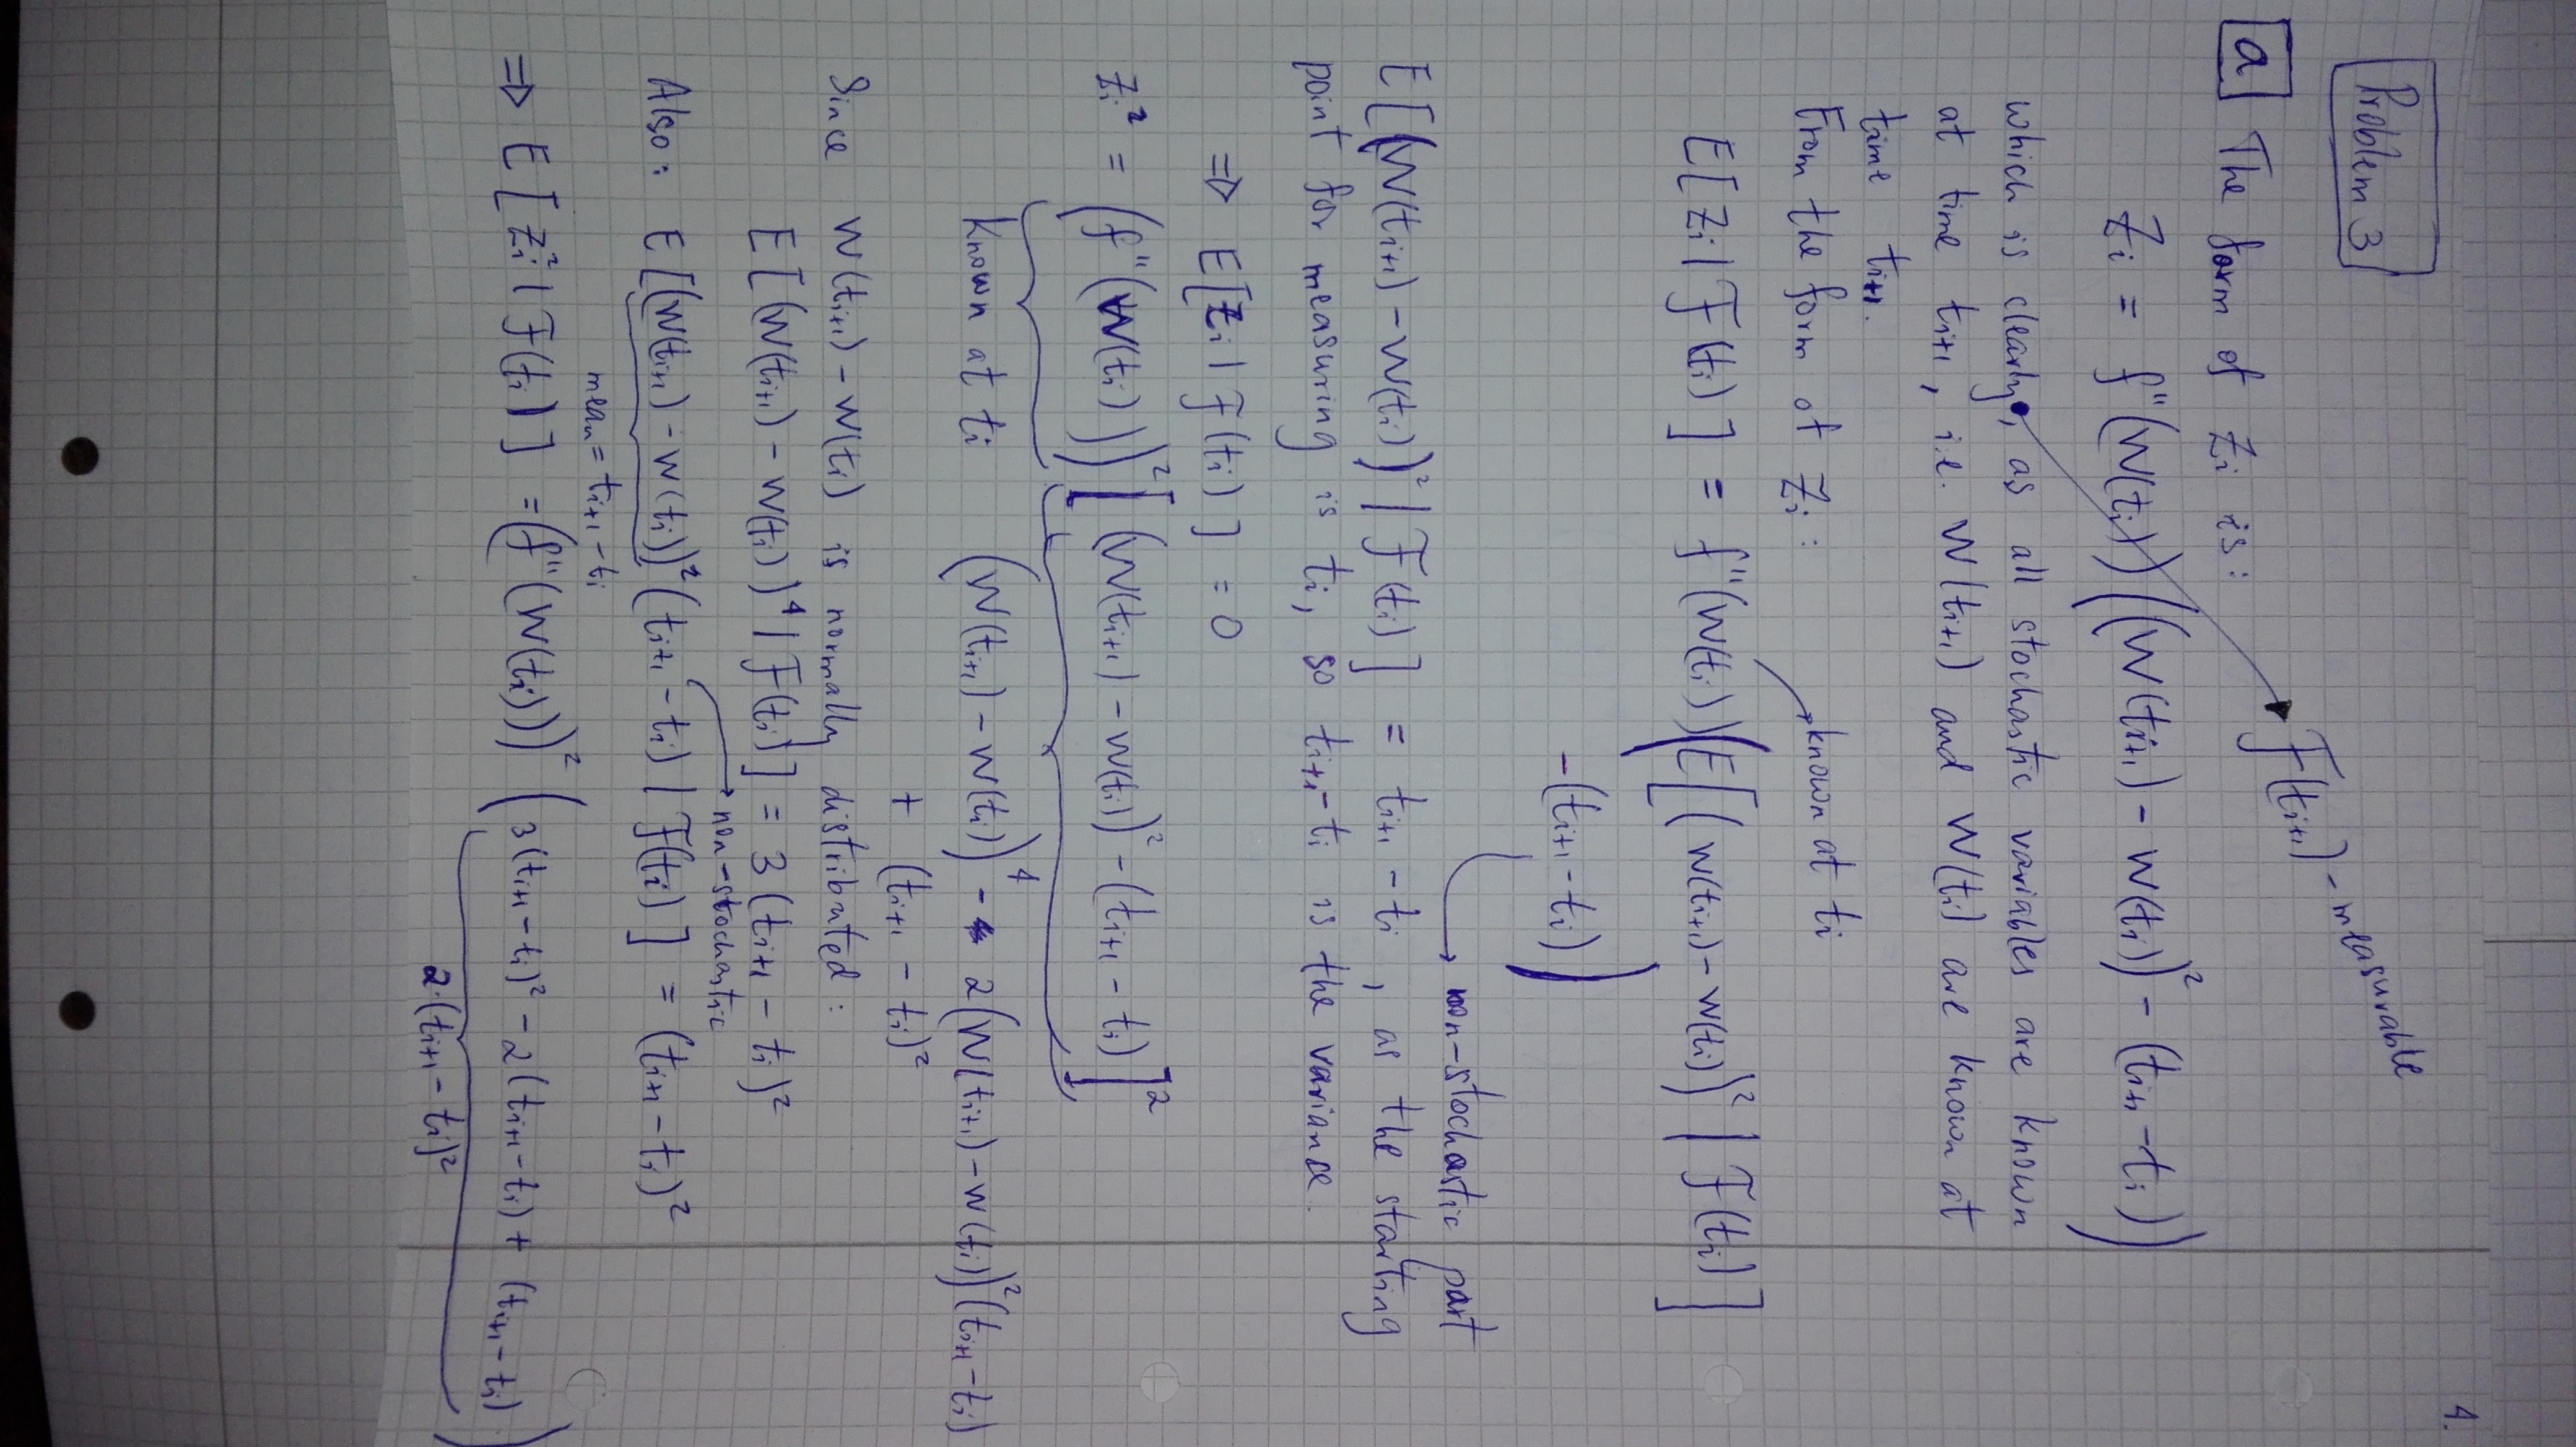 4.
Problem 3
a The form of Zi is:
F(ti+1)-measurable
Zi = f''(W(ti))((W(ti+1) - W(ti))² - (ti+1 - ti))
which is clearly, as all stochastic variables are known
at time ti+1, i.e. W(ti+1) and W(ti) are known at
time ti+1.
From the form of Zi:
known at ti
E[Zi|F(ti)] = f''(W(ti))(E[(W(ti+1) - W(ti))² | F(ti)]
-(ti+1 - ti))
non-stochastic part
E[(W(ti+1) - W(ti))² | F(ti)] = ti+1 - ti, as the starting
point for measuring is ti, so ti+1 - ti is the variance.
⇒ E[Zi | F(ti)] = 0
Zi² = (f''(W(ti)))² [(W(ti+1) - W(ti))² - (ti+1 - ti)]²
Known at ti (W(ti+1) - W(ti))⁴ - 2(W(ti+1) - W(ti))²(ti+1 - ti)
+ (ti+1 - ti)²
Since W(ti+1) - W(ti) is normally distributed:
E[(W(ti+1) - W(ti))⁴ | F(ti)] = 3(ti+1 - ti)²
non-stochastic
Also: E[(W(ti+1) - W(ti))²(ti+1 - ti) | F(ti)] = (ti+1 - ti)²
mean = ti+1 - ti
⇒ E[Zi² | F(ti)] = (f''(W(ti)))² (3(ti+1 - ti)² - 2(ti+1 - ti) + (ti+1 - ti))
2·(ti+1 - ti)²